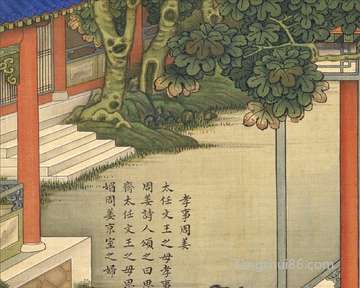 孝事周姜
太任文王之母孝事
周姜詩人頌之曰思
齊太任文王之母思
媚周姜京室之婦